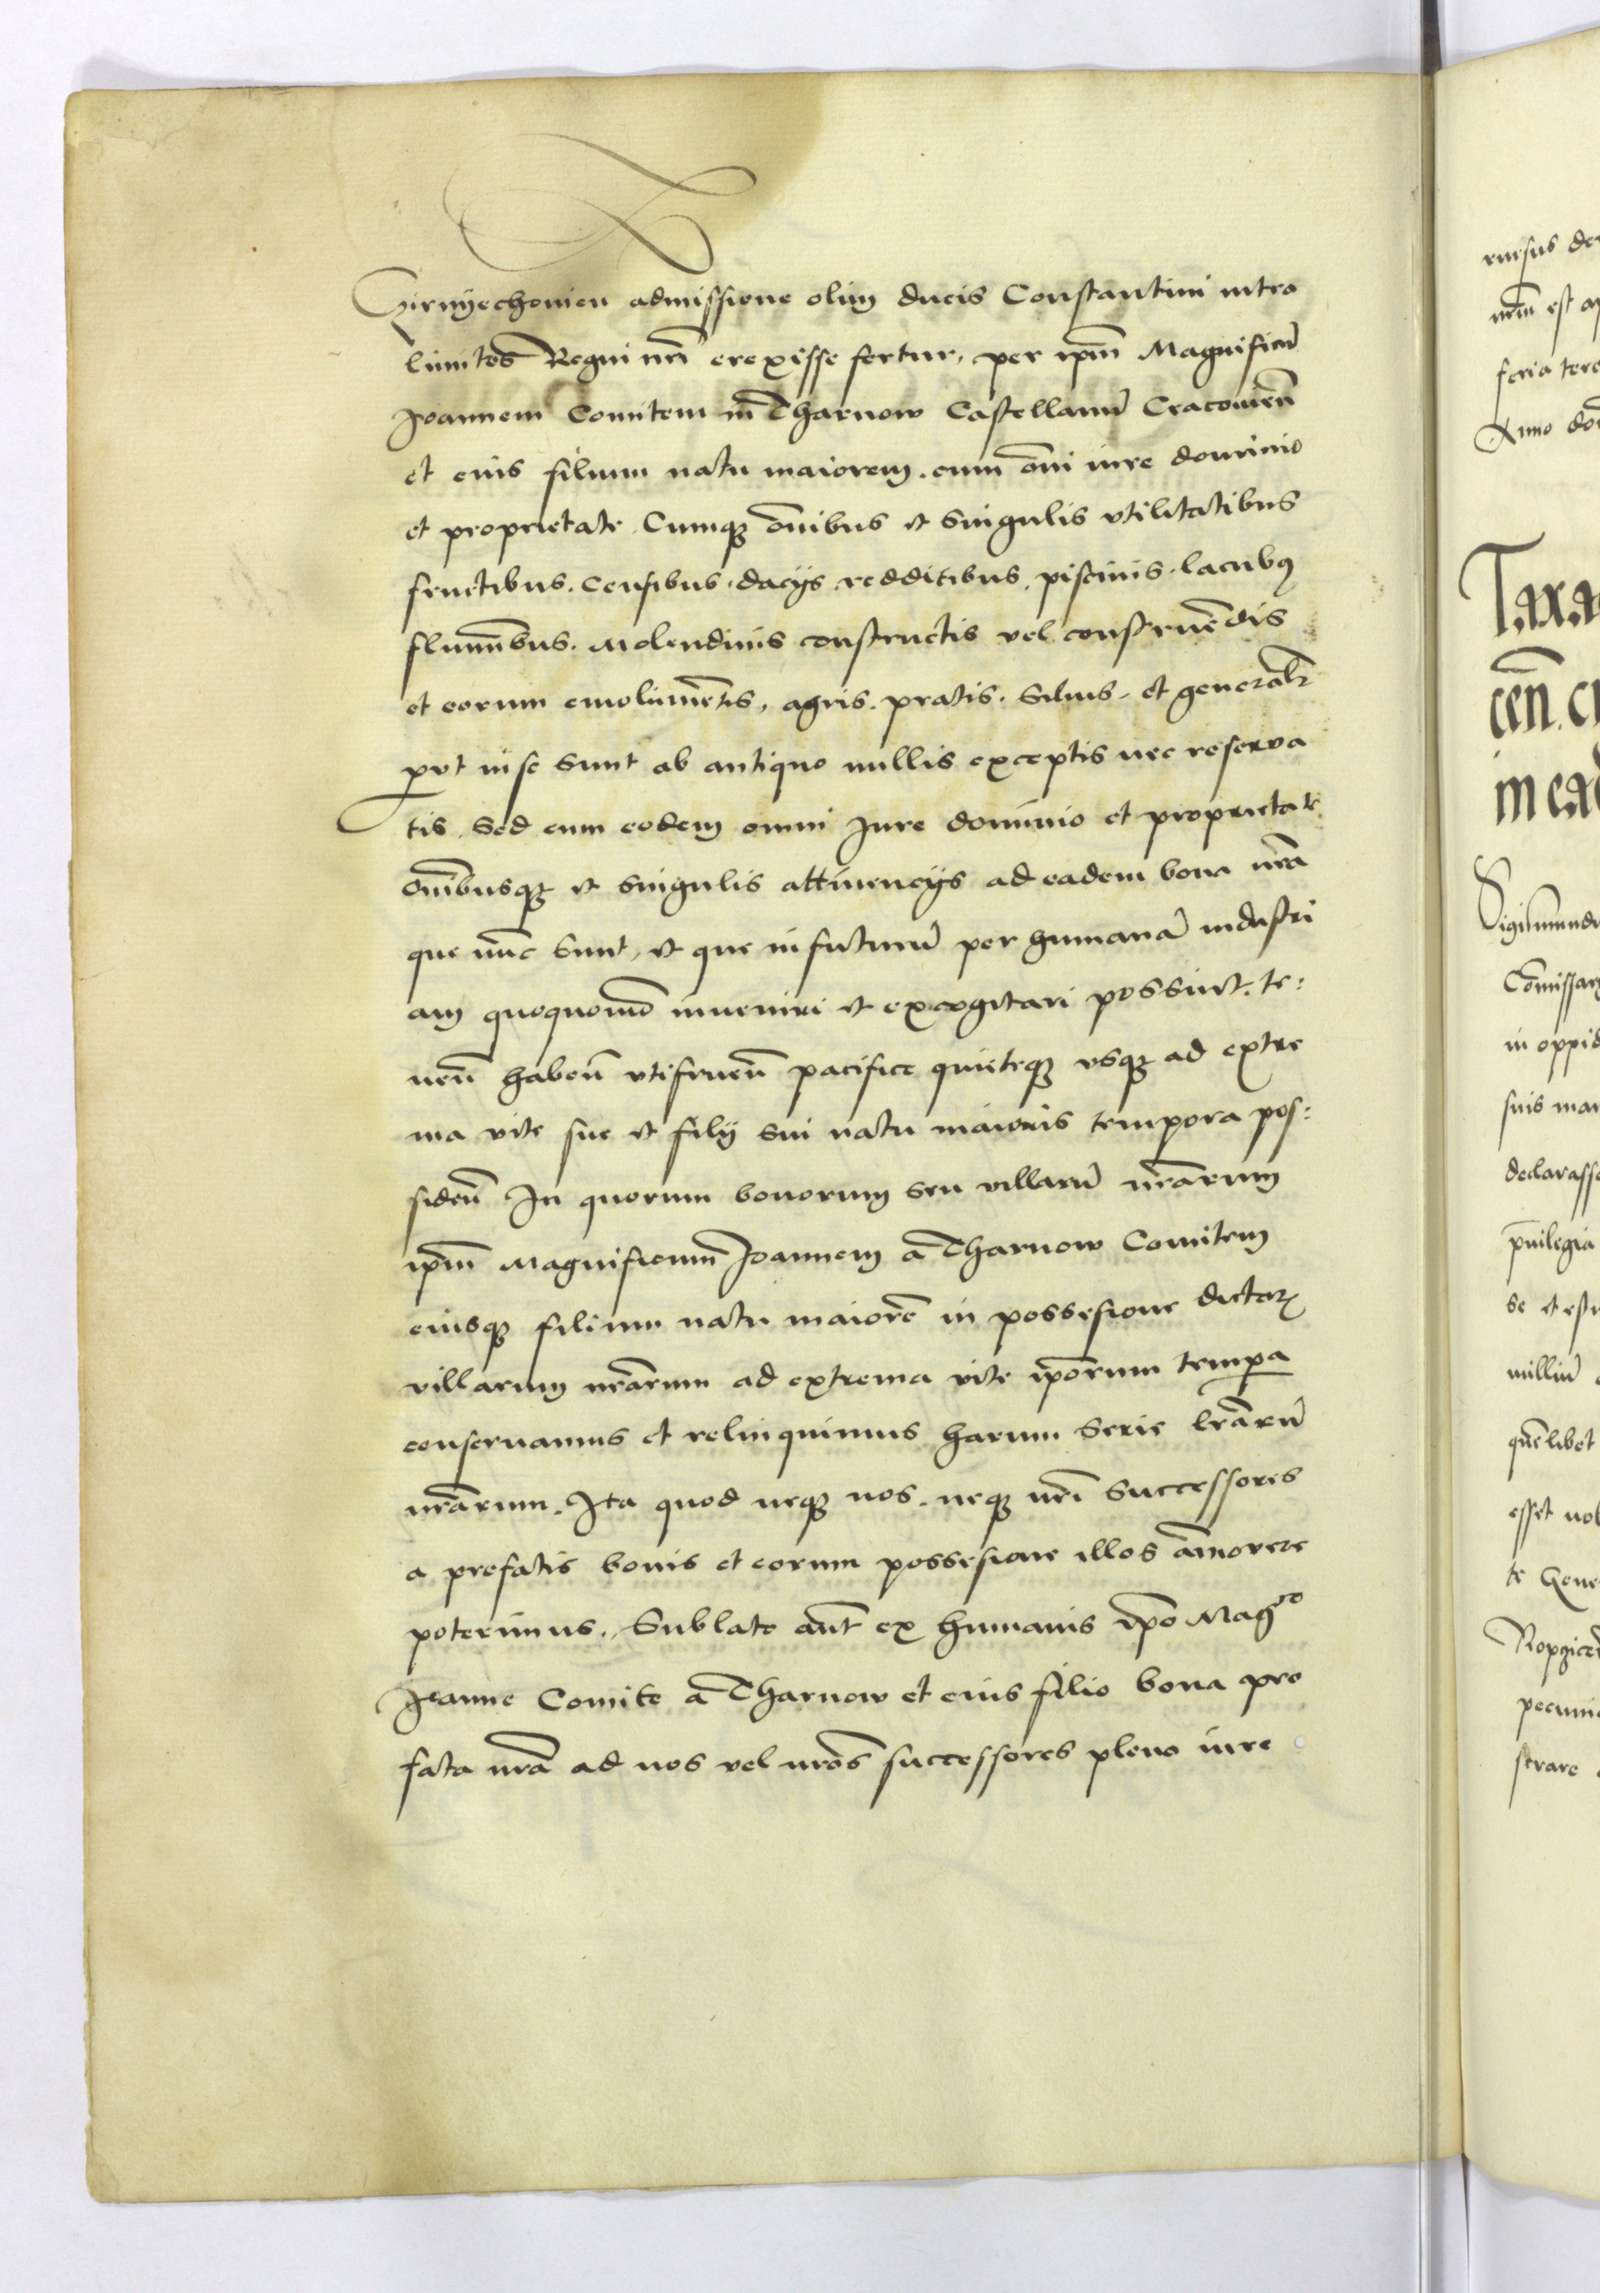 Czirmyechonien admissione olim ducis Constantini intra
limites Regni nrī erexisse fertur, per ipm̄ Magnificū
Joannem Comitem in Tharnow Castellanū Cracouien̄
et eius filium natu maiorem. cum om̄i iure dominio
et proprietate. Cumq3 om̄ibus et singulis vtilitatibus
fructibus. Censibus. dacijs redditibus. piscinis. lacubꝰ
flumībus. Molendinis constructis vel construēdis
et eorum emolimētis, agris. pratis. Siluis. et generalr̄
put in se sunt ab antiquo nullis exceptis nec reserua
tis. Sed cum eodem omni Jure dominio et proprietate
om̄ibusq3 et singulis attinencijs ad eadem bona nrā
que nūc sunt, et que in futurū per humanā industri
am quoquomō inueniri et excogitari possint. te:
nen̄ haben̄ vtifruen̄ pacifice quieteq3 vsq3 ad extre
ma vite sue et filij sui natu maioris tempora pos:
siden̄ In quorum bonorum seu villarū nrārum
ipm̄ Magnificum Joannem a Tharnow Comitem
eiusq3 filium natu maiorē in possesione dictaꝝ
villarum nrārum ad extrema vite ipōrum tempa
conseruamus et relinquimus harum Serie lrārū
nrārum. Ita quod neq3 nos. neq3 nrī Successores
a prefatis bonis et eorum possesione illos āmovere
poterimus. Sublato aūt ex humanis ipō Magco
Joanne Comite a Tharnow et eius filio bona pre
fata nrā ad nos vel nrōs successores pleno iure
rursus de
nrm̄ est
feria terc
Anno do
Taxa
cen̄. c
in ead
Sigismund
Comissar
in oppid
suis man
declarasse
pūilegia
se et
milliū
quēlibet
esset nob
te Gene
Ropgicen̄
pecuni
strare